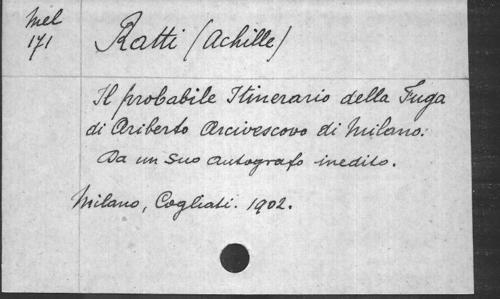 Mel
171
Ratti (Achille)
Il probabile Itinerario della Fuga
di Ariberto Arcivescovo di Milano:
Da un suo autografo inedito.
Milano, Cogliati. 1902.